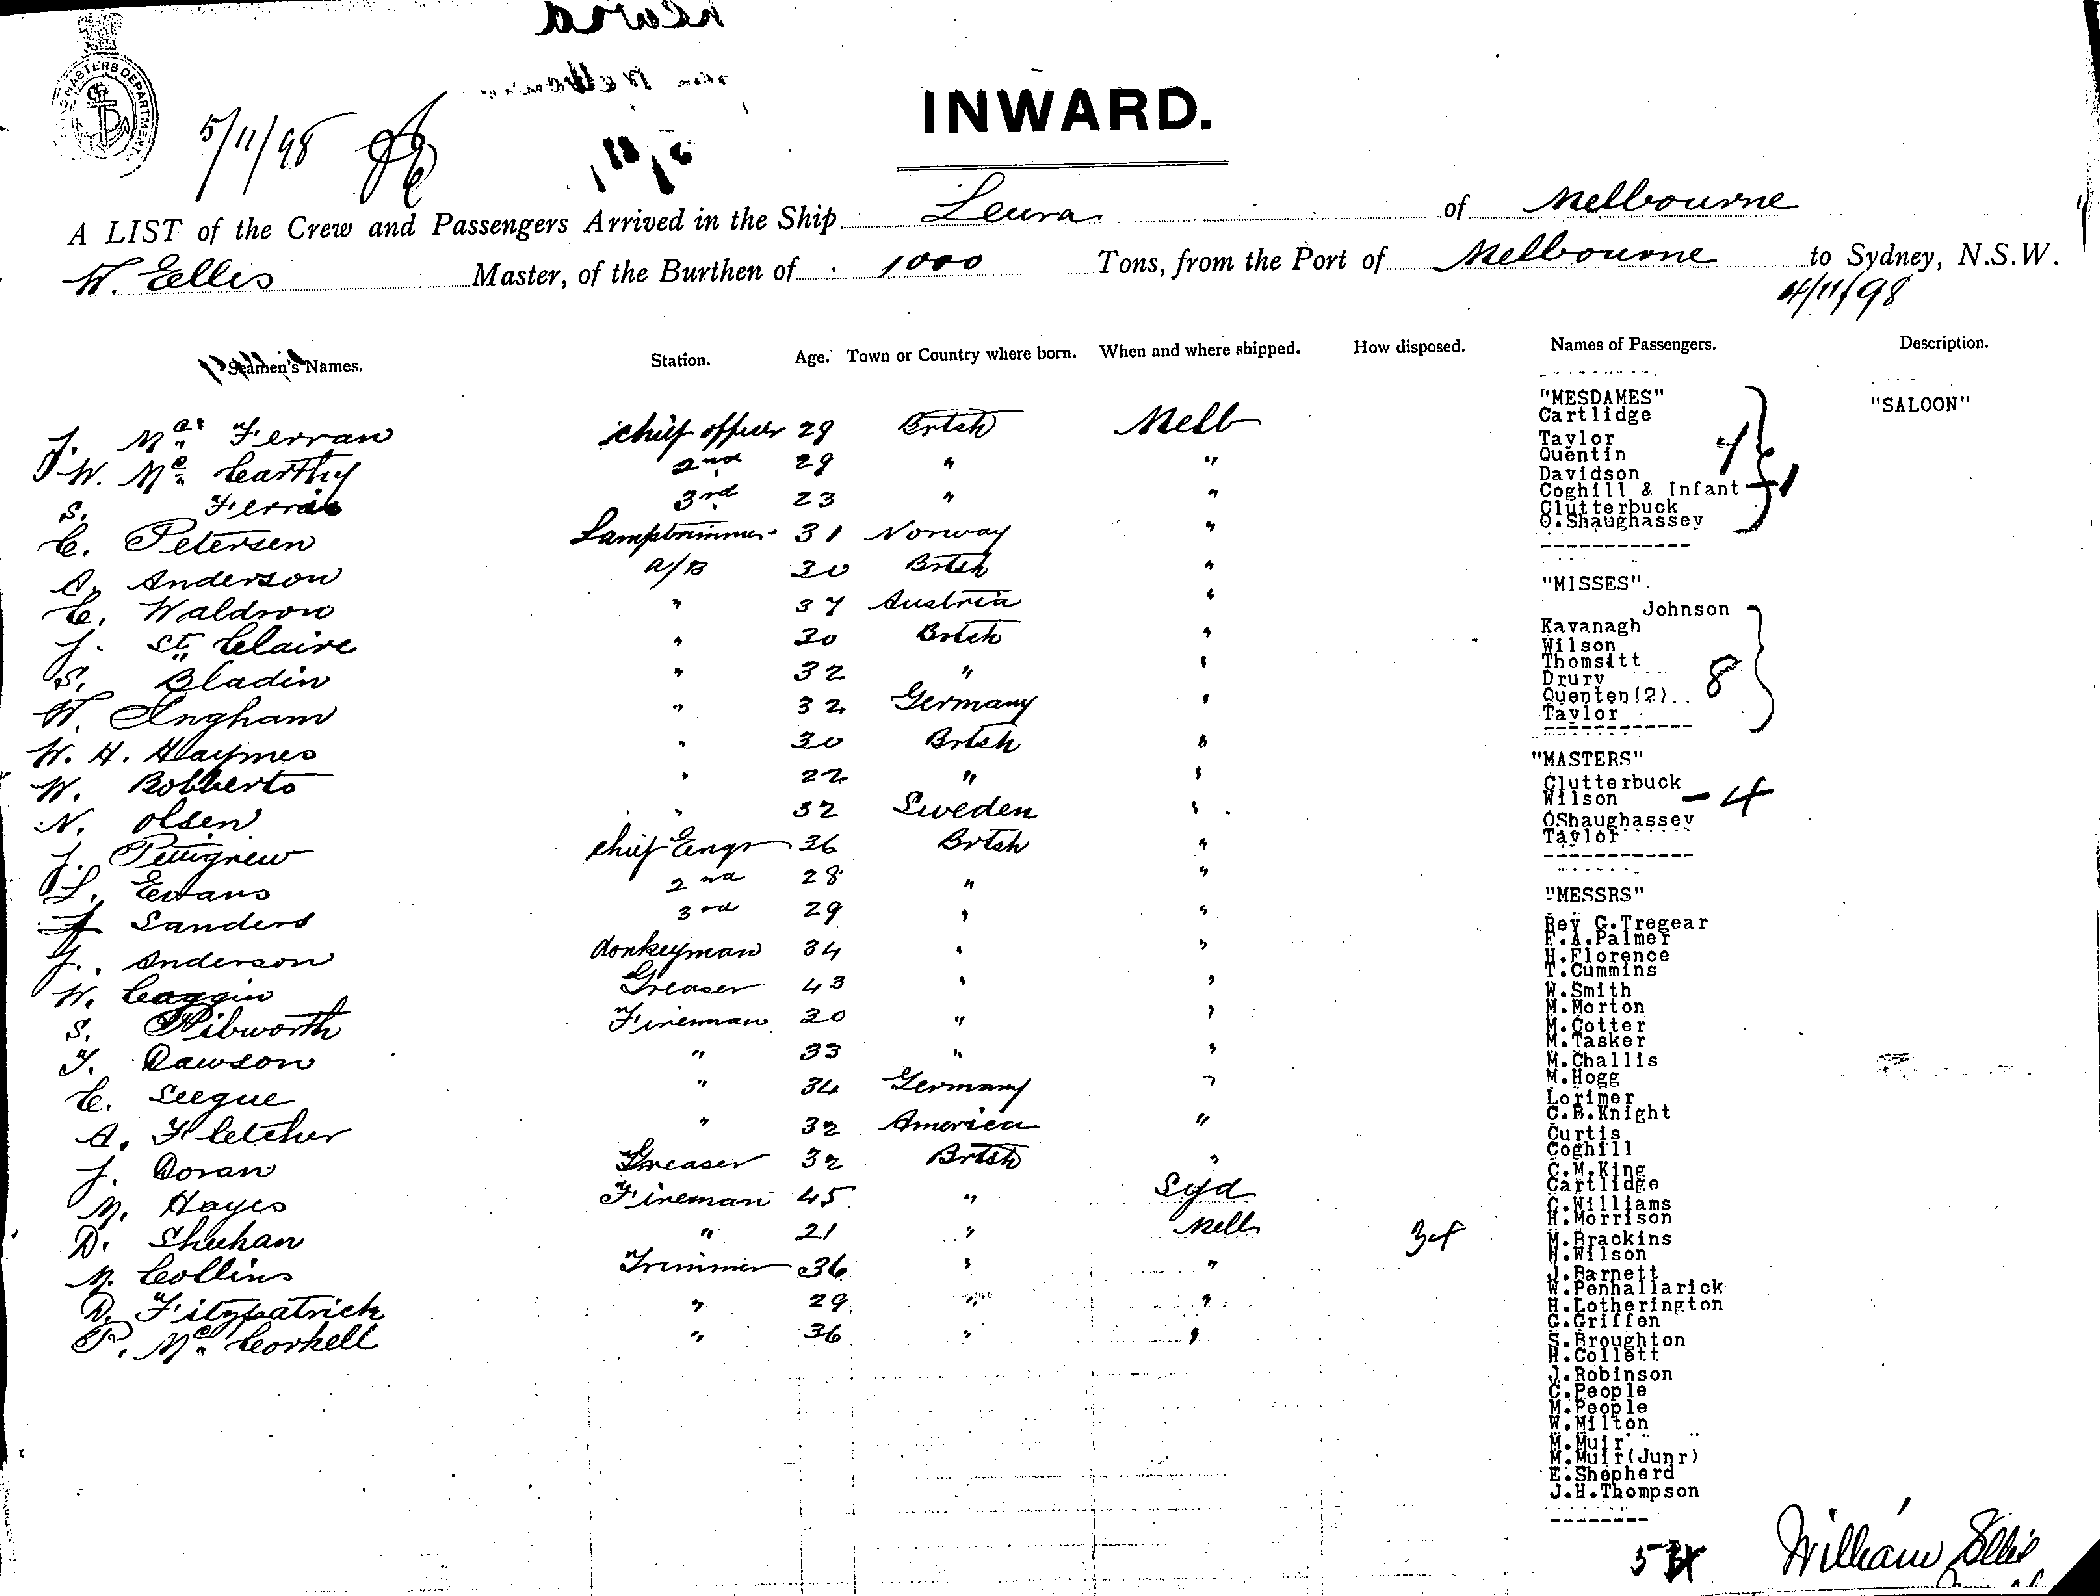 MASTERS DEPARTMENT
5/11/98
INWARD.
A LIST of the Crew and Passengers Arrived in the Ship Leura of Melbourne
W. Ellis Master, of the Burthen of 1000 Tons, from the Port of Melbourne to Sydney, N.S.W.
4/11/98
Seamen's Names. Station. Age. Town or Country where born. When and where shipped. How disposed. Names of Passengers. Description.
J. Mc Ferran chief officer 29 Brtsh Melb
W. Mc Carthy 2nd 29 " "
S. Ferris 3rd 23 " "
C. Petersen Lamptrimmer 31 Norway "
A. Anderson A/B 30 Brtsh "
C. Waldron " 37 Austria "
J. St. Claire " 30 Brtsh "
S. Bladin " 32 " "
W. Ingham " 32 Germany "
W. H. Haymes " 30 Brtsh "
W. Robberts " 22 " "
N. Olsen " 32 Sweden "
J. Pettigrew chief Engr 36 Brtsh "
L. Ewans 2nd 28 " "
J Sanders 3rd 29 " "
J. Anderson donkeyman 34 " "
W. Caggin Greaser 43 " "
S. Pibworth Fireman 30 " "
T. Dawson " 33 " "
C. Seegue " 34 Germany "
A. Fletcher " 32 America "
J. Doran Greaser 32 Brtsh "
M. Hayes Fireman 45 " Syd
D. Shehan " 21 " Melb
34
M. Collins Trimmer 36 " "
D. Fitzpatrick " 29 " "
P. Mc Corkell " 36 " "
"MESDAMES" "SALOON"
Cartlidge
Taylor
Quentin
Davidson
Coghill & Infant
Clutterbuck
O.Shaughassey
"MISSES".
Johnson
Kavanagh
Wilson
Thomsitt
Drury
Quenten(2)..
Taylor
8
"MASTERS"
Clutterbuck
Wilson - 4
OShaughassey
Taylor
"MESSRS"
Rev G.Tregear
F.A.Palmer
H.Florence
T.Cummins
W.Smith
M.Morton
M.Cotter
M.Tasker
M.Challis
M.Hogg
Lorimer
C.B.Knight
Curtis
Coghill
C.M.King
Cartlidge
C.Williams
H.Morrison
M.Brackins
H.Wilson
J.Barnett
W.Penhallarick
H.Lotherington
G.Griffen
S.Broughton
H.Collett
J.Robinson
C.People
M.People
W.Milton
M.Muir
M.Muir(Junr)
E.Shepherd
J.H.Thompson
William Ellis